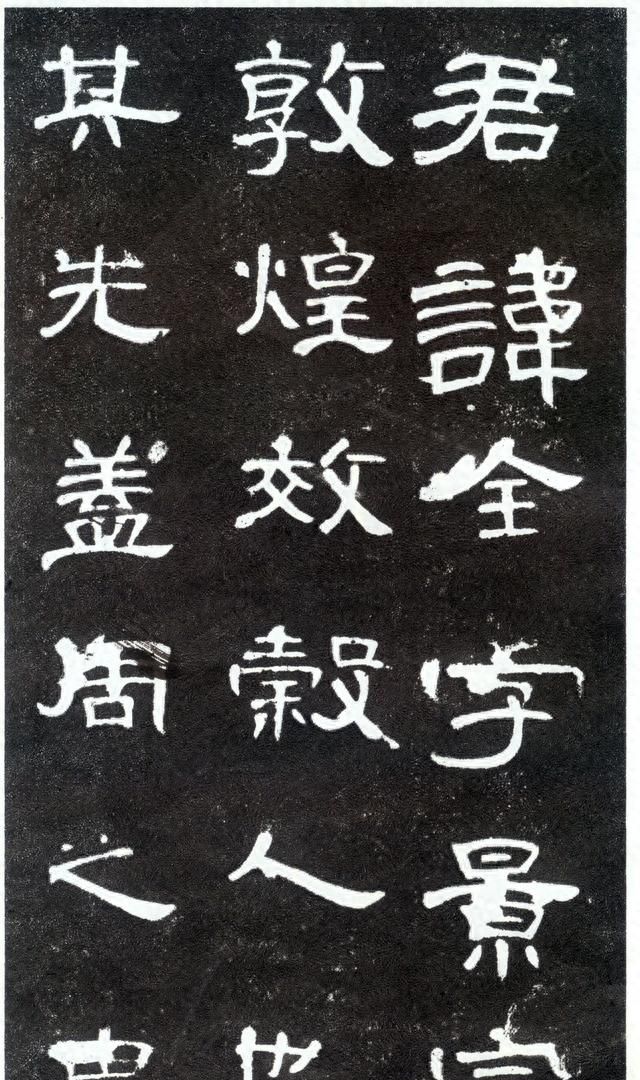 君諱全字景
敦煌效穀人
其先盖周之